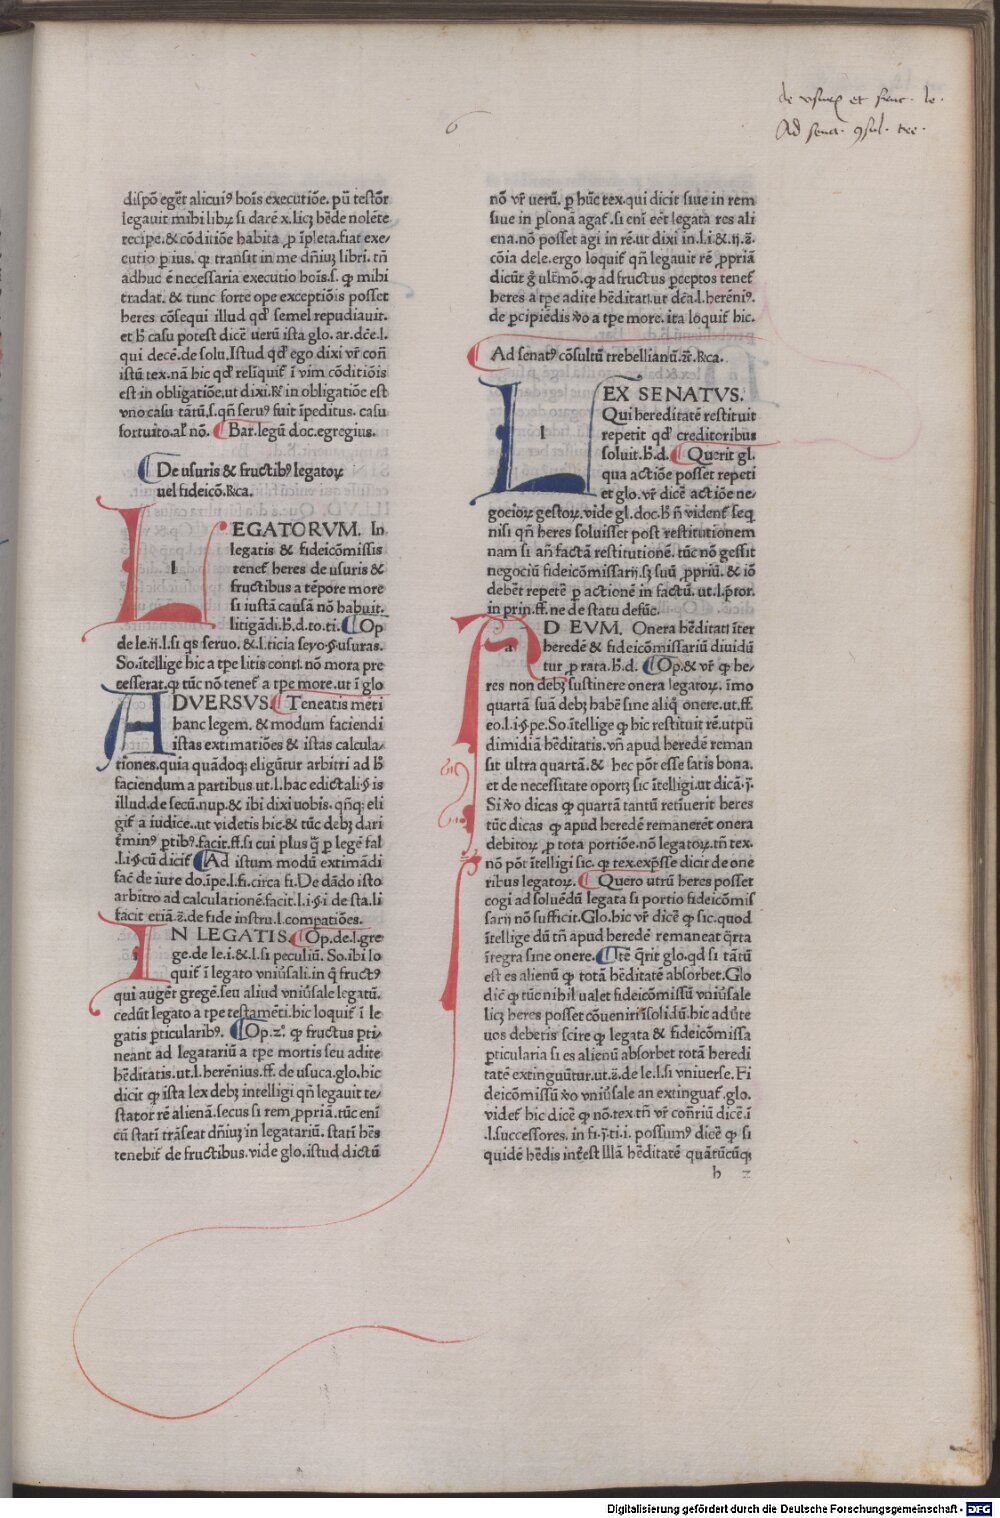 de usur et fruc. le.
Ad sena. ꝯsul. tre.
6
dispō egēt alicuiꝰ hoīs executiōe. pū testōr
legauit mihi libꝝ si darē x. licꝫ hēde nolēte
recipe. & cōditiōe habita ꝓ īpleta. fiat exe/
cutio ꝑ ius. ꝙ transit in me dñiuꝫ libri. tñ
adhuc ē necessaria executio hoīs. s. ꝙ mihi
tradat. & tunc forte ope exceptiōis posset
heres cōsequi illud qđ semel repudiauit.
et ħ casu potest dicē uerū ista glo. ar. dēe. l.
qui decē. de solu. Istud qđ ego dixi vr̄ coñ
istū tex. nā hic qđ relīquit̄ ī vim cōditiōis
est in obligatiōe. ut dixi. & in obligatiōe est
vno casu tātū. s. qñ seruꝰ fuit īpeditus. casu
fortuito. al̄ nō. Bar. legū doc. egregius.
De usuris & fructibꝰ legatoꝝ
uel fideicō. R̄ca.
LEGATORVM. In
l
legatis & fideicōmissis
tenet̄ heres de usuris &
fructibus a tēpore more
si iustā causā nō habuit.
litigādi. h̄. d. to. ti. Op
de le. ij. l. si qs seruo. & l. ticia seyo. §. usuras.
So. ītellige hic a tpe litis contī. nō mora pre
cesserat. ꝙ tūc nō tenet̄ a tpe more. ut ī glo
ADVERSVS. Teneatis mēti
hanc legem. & modum faciendi
istas extimatiōes & istas calcula/
tiones. quia quādoqꝫ eligūtur arbitri ad ħ
faciendum a partibus ut l. hac edictali. §. is
illud. de secū. nup. & ibi dixi uobis. qñqꝫ eli
git̄ a iudice.. ut videtis hic. & tūc debꝫ dari
t̄minꝰ ꝑtibꝰ. facit. ff. si cui plus q̄ ꝑ legē fal
.l. i. §. cū dicit̄ Ad istum modū extimādi
fac̄ de iure do. īpe. l. fi. circa fi. De dādo isto
arbitro ad calculationē. facit. l. i. §. i de sta. li
facit etiā. z̄. de fide instru. l. compatiōes.
IN LEGATIS. Op. de. l. gre
ge. de le. i. & l. si peculiū. So. ibi lo
quit̄ ī legato vniūsali. in q̄ fructꝰ
qui augēt gregē. seu aliud vniūsale legatū.
cedūt legato a tpe testamēti. hic loquit̄ ī le
gatis ꝑticularibꝰ. Op. z°. ꝙ fructus ꝑti/
neant ad legatariū a tpe mortis seu adite
hēditatis. ut. l. herēnius. ff. de usuca. glo. hic
dicit ꝙ ista lex debꝫ intelligi qñ legauit te/
stator rē alienā. secus si rem ꝓpriā. tūc enī
cū statī trāseat dñiuꝫ in legatariū. statī hēs
tenebit̄ de fructibus. vide glo. istud dictū
nō vr̄ uerū. ꝑ hūc tex. qui dicit siue in rem
siue in ꝑsonā agat̄. si enī eēt legata res ali
ena. nō posset agi in rē. ut dixi in. l. i & ij. z̄.
cōia dele. ergo loquit̄ qñ legauit rē ꝓpriā
dicūt ḡ ultēmō. ꝙ ad fructus ꝑceptos tenet̄
heres a tpe adite hēditatī. ut dc̄a. l. herēniꝰ.
de ꝑcipiēdis v̄o a tpe more. ita loquit̄ hic.
Ad senatꝰ cōsultū trebellianū. z̄. R̄ca.
LEX SENATVS.
l
Qui hereditatē restituit
repetit qđ creditoribus
soluit. h̄. d. Querit gl.
qua actiōe posset repeti
et glo. vr̄ dicē actiōe ne/
gocioꝝ gestoꝝ. vide gl. doc. ħ ñ vident̄ seq
nisi qñ heres soluisset post restitutionem
nam si añ factā restitutionē. tūc nō gessit
negociū fideicōmissarij. sꝫ suū ꝓpriū. & iō
debēt repetē ꝑ actionē in factū. ut. l. p̄tor.
in prin. ff. ne de statu defūc.
AD EVM. Onera hēditatī īter
a
heredē & fideicōmissariū diuidū
tur ꝓ rata. h̄. d. Op. & vr̄ ꝙ he/
res non debꝫ sustinere onera legatoꝝ. īmo
quartā suā debꝫ habē sine aliq̄ onere. ut. ff.
eo. l. i. §. pe. So. ītellige ꝙ hic restituit rē. utpū
dimidiā hēditatis. vñ apud heredē reman
sit ultra quartā. & hec pōt esse satis bona.
et de necessitate oportꝫ sic ītelligi. ut dicā. j̄.
Si v̄o dicas ꝙ quartā tantū retīuerit heres
tūc dicas ꝙ apud heredē remanerēt onera
debitoꝝ ꝑ tota portiōe. nō legatoꝝ. tñ tex.
nō pōt ītelligi sic. ꝙ tex. exp̄sse dicit de one
ribus legatoꝝ. Quero utrū heres posset
cogi ad soluēdū legata si portio fideicōmis
sarij nō sufficit. Glo. hic vr̄ dicē ꝙ sic. quod
ītellige dū tñ apud heredē remaneat q̄rta
ītegra sine onere. Itē q̄rit glo. qđ si tātū
est es alienū ꝙ totā hēditatē absorbet. Glo
dic̄ ꝙ tūc nihil ualet fideicōmissū vniūsale
licꝫ heres posset cōueniri īsolidū. hic adūte
uos debetis scire ꝙ legata & fideicōmissa
ꝑticularia si es alienū absorbet totā heredi
tatē extinguūtur. ut. z̄. de le. l. si vniuerse. Fi
deicōmissū v̄o vniūsale an extinguat̄. glo.
videt̄ hic dicē ꝙ nō. tex. tñ vr̄ cōn̄riū dicē. ī
.l. successores. in fi. j̄. ti. i. possumꝰ dicē ꝙ si
quidē hēdis int̄est illā hēditatē quātūcūqꝫ
h z
Digitalisierung gefördert durch die Deutsche Forschungsgemeinschaft - DFG